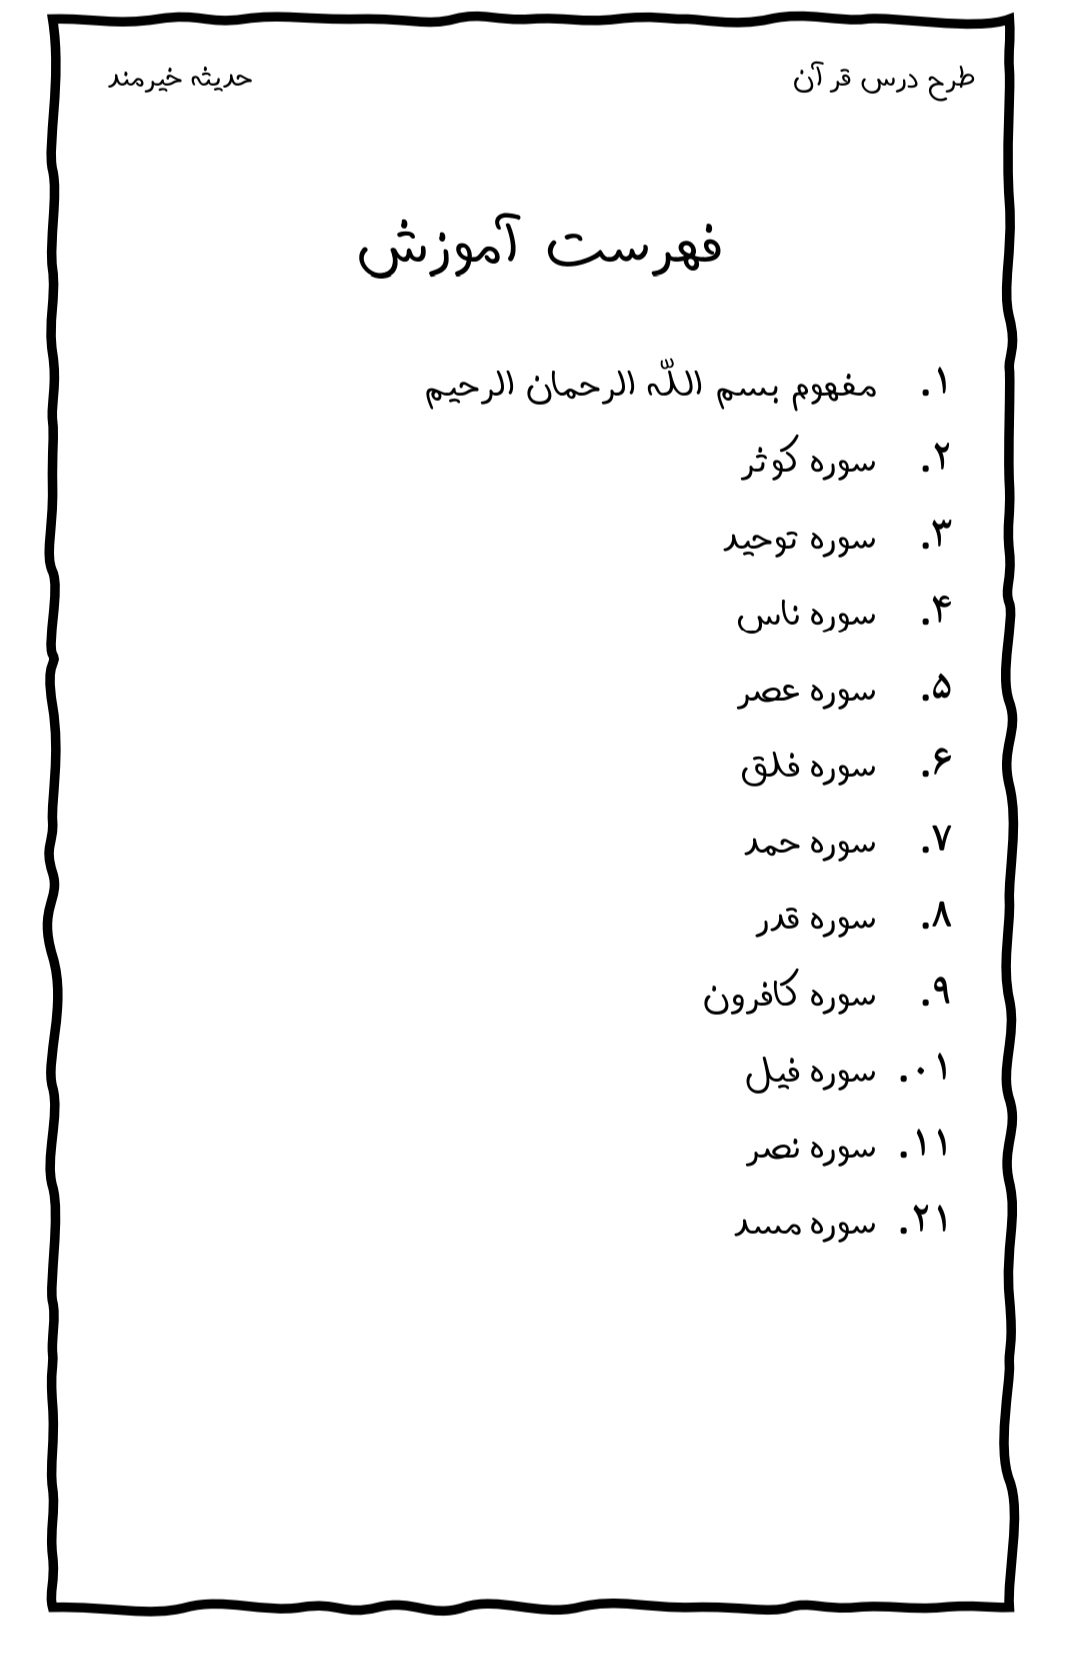 طرح درس قرآن	حدیثه خیرمند
فهرست آموزش
۱. مفهوم بسم اللّه الرحمان الرحیم
۲. سوره کوثر
۳. سوره توحید
۴. سوره ناس
۵. سوره عصر
۶. سوره فلق
۷. سوره حمد
۸. سوره قدر
۹. سوره کافرون
۱۰. سوره فیل
۱۱. سوره نصر
۱۲. سوره مسد